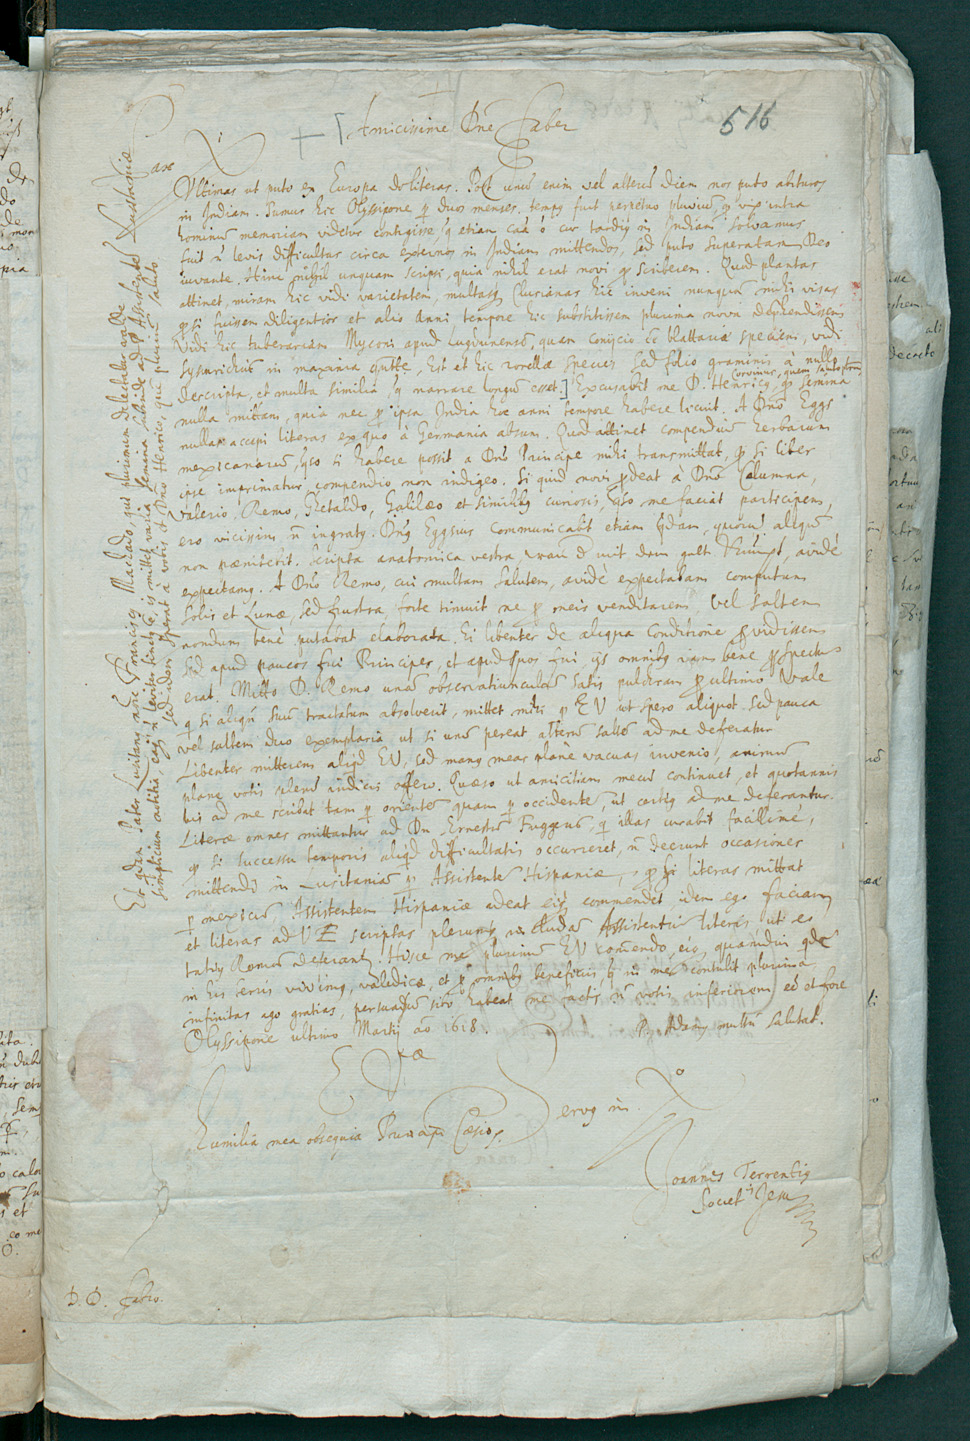 516
Amicissime Dne Faber
Ultimas ut puto ex Europa do literas. Post unum enim vel alterum diem nos puto abituros
in Indiam. Fuimus hic Olyssipone p duos menses, tempus fuit perpetuo pluvium, vix intra
hominum memoriam videtur contigisse, q etiam caa e cur tardius in Indiam solvamus
fuit n levis difficultas circa externos in Indiam mittendos, sed puto superatam Deo
iuvante. Hinc nihil unquam scripsi, quia nihil erat novi q scriberem. Quod plantas
attinet, miram hic vidi varietatem, multasq Clusianas hic inveni nunquam mihi visas
q si fuissem diligentior et alio anni tempore hic substitissem plurima nova deprehendissem
Vidi hic tuberariam Myconi apud Lugdunensem, quam conijcio ee blattariae speciem, vidi
Sysinrichium in maxima qntte, Est et hic rorellae species sed folio gramineo à nullo
descripta, et multa similia, q narrare longum esset.] Excusabit me D. Henricus
Corvinus, quem saluto
q semina
nulla mittam, quia nec ipsa India hoc anni tempore habere licuit. A Dno Eggs
nullas accepi literas ex quo à Germania absum. Quod attinet compendium herbarum
mexicanarum, qso si habere possit a Dno Principe mihi transmittat, q si liber
ipse imprimatur compendio non indigeo. Si quid novi prodeat à Dno Columna,
Valerio, Remo, Ghetaldo, Galilaeo et similibus curiosis, qso me faciat participem,
ero vicissim n ingratus. Dnus Eggsius communicabit etiam qdam, quorum aliqm
non paenitebit. Scripta anatomica vestra
expectamus. A Dno Remo, cui multam salutem, avidè expectabam computum
Solis et Lunae, sed frustra, forte timuit ne p meis venditarem, vel saltem
nondum benè putabat elaborata. Ei libenter de aliqua conditione providissem
sed apud paucos fui Principes, et apud quos fui, ijs omnibus iam bene prospectum
erat. Mitto D. Remo unam observatiunculam satis pulchram pro ultimo Vale
q si aliqn suum tractatum absolverit, mittet mihi p EV ut spero aliquot. sed pauca
vel saltem duo exemplaria, ut si unum pereat alterum saltem ad me deferatur
Libenter mitterem aliqd EV, sed manus meas planè vacuas invenio, animum
plane votis plenum iudicis offero. Quaeso ut amicitiam meam continuet, et quotannis
bis ad me scribat tam p orientem quam p occidentem ut certius ad me deferantur
Literae omnes mittantur ad Dn Ernestum Fuggerum, q illas curabit facillimè,
q si successu temporis aliqd difficultatis occurreret, n deerunt occasiones
mittendi in Lusitaniam p Assistentem Hispaniae, q si literas mittat
p mexicum, Assistentem Hispaniae adeat eiq commendet idem ego faciam
et literas ad VE scriptas plerumq includam Assistentis literis, uti eo
tutius Romam deferantur. Hisce me plurimum EV comendo, eiq, quamdiu qdē
in his terris vivimus, valedico, et p omnibus beneficijs q in me contulit plurima
infinitas ago gratias, persuasum sibi habeat me factis n votis inferiorem ee et fore
Olyssipone ultimo Martij ao 1618. P. Adamus multum salutat.
Servus in Xo
Humilia mea obsequia Principi Caesio
Joannes Terrentius
Societis Jesu
D. D. Fabro.
Est qdam Pater Lusitanus noie Franciscus Machado, qui plurimum delectatur
semina subinde ad P. Assistentem Lusitaniae
sed idem sperat à vobis et Dno Henrico, quem plurimum saluto